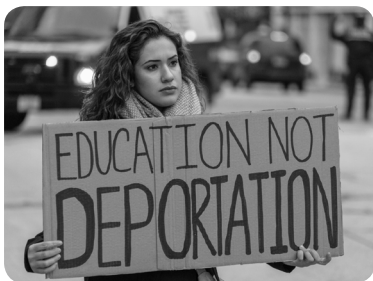 EDUCATION NOT
DEPORTATION